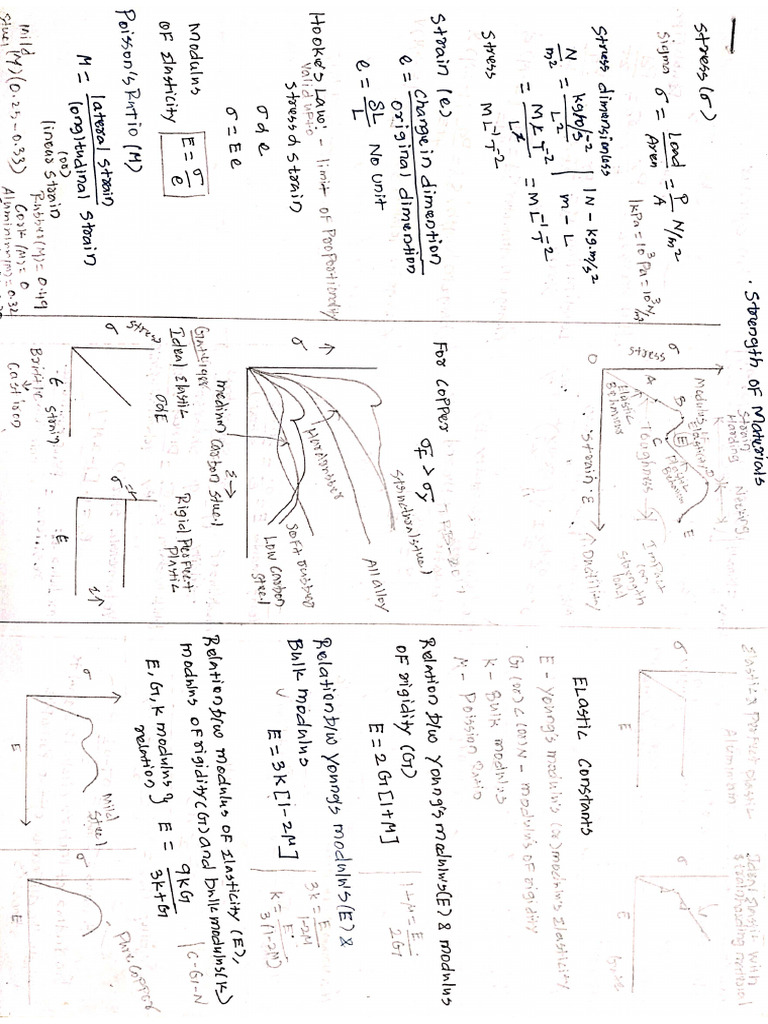 Strength of Materials
1
Stress (σ)
Sigma σ = Load/Area = P/A N/m²
1kPa = 10³ Pa = 10³ N/m²
Stress dimensionless
N/m² = kg m/s⁻²/L² | 1N - kg.m/s²
= MLT⁻²/L² = ML⁻¹T⁻² | m - L
Stress ML⁻¹T⁻²
Strain (e)
e = Change in dimention/original dimention
e = δL/L No unit
Hooke's Law:- limit of Proportionality
Valid upto
Stress α strain
σ α e
σ = Ee
Modulus
of Elasticity E = σ/e
Poisson's Ratio (M)
M = lateral strain/longitudinal strain
(or)
linear strain
Mild
Steel (M) (0.25-0.33)
Rubber (M) = 0.49
Cork (M) = 0
Aluminium (M) = 0.32
Strain
Harding
Necking
Modulus of
Elasticity
σ
Stress
O
A
B
C
D
E
E
Elastic
Behaviour
Plastic
Behaviour
Toughness
Impact
(or)
strength
load
Strain. ε
Ductility
For Copper σF > σy
σ
All alloy
Structural steel
Hard rubber
Soft rubber
Low Carbon
Steel
medium Carbon Steel
ε →
Ideal Elastic
σ α E
σ stress
ε strain
Brittle
Cast iron
Rigid Perfect
Plastic
σ
ε
Elastic & Perfect plastic
Aluminium
σ
E
Ideal Elastic with
strain harding material
σ
E
ELastic Constants
E - Young's modulus (or) modulus Elasticity
G (or) C (or) N - modulus of rigidity
K - Bulk modulus
M - Poission Ratio
Relation b/w Young's modulus (E) & modulus
of rigidity (G)
E = 2G [1+M] | 1+M = E/2G
Relation b/w Young's modulus (E) &
Bulk modulus
E = 3K [1-2M] | 3K = E/1-2M
K = E/3(1-2M)
Relation b/w modulus of Elasticity (E),
modulus of rigidity (G) and bulk modulus (K)
E, G, K modulus }
relation E = 9KG/3K+G | C-G-N
σ
E
Mild
Steel
σ
E
Pure Copper